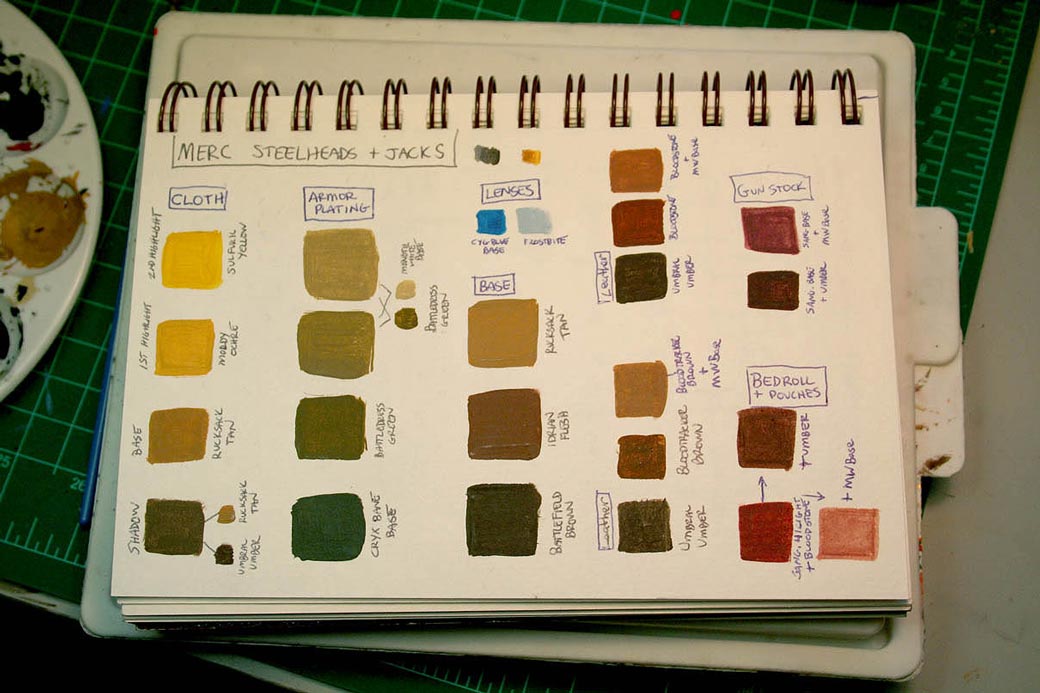 MERC STEELHEADS + JACKS
CLOTH
2ND HIGHLIGHT
SULFURIC
YELLOW
1ST HIGHLIGHT
MOLDY
OCHRE
BASE
RUCKSACK
TAN
SHADOW
RUCKSACK
TAN
UMBRAL
UMBER
ARMOR
PLATING
MENOTH
WHITE
BASE
BATTLEDRESS
GREEN
BATTLEDRESS
GREEN
CRYX BANE
BASE
LENSES
CYG BLUE
BASE
FROSTBITE
BASE
RUCKSACK
TAN
IDRIAN
FLESH
BATTLEFIELD
BROWN
BLOODSTONE
+
MW BASE
BLOODSTONE
Leather
UMBRAL
UMBER
BLOODTRACKER
BROWN
+
MW BASE
BLOODTRACKER
BROWN
Leather
UMBRAL
UMBER
GUN STOCK
SANG BASE
+
MW BASE
SANG. BASE
+ UMBER
BEDROLL
+ POUCHES
+ UMBER
SANG. HILIGHT
+ BLOODSTONE
+ MW Base